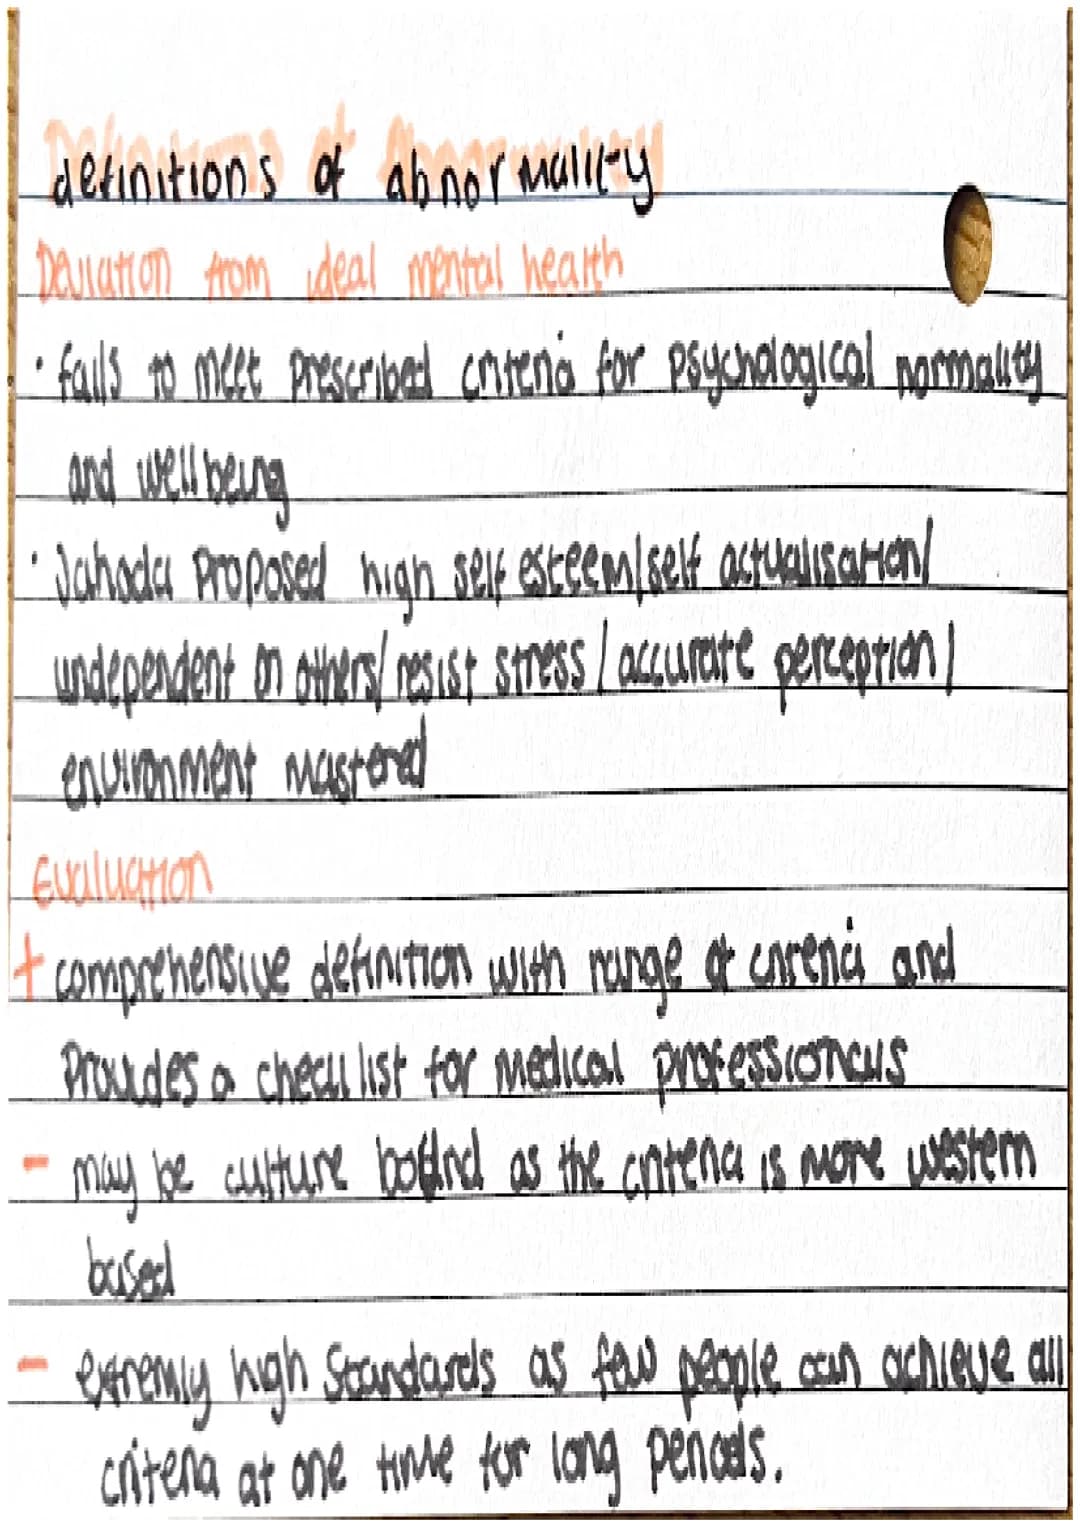 definitions of abnormality
Deviation from ideal mental health
· fails to meet prescribed criteria for psychological normality
and wellbeing
· Jahoda Proposed high self esteem/self actualisation/
undependent on others/ resist stress / accurate perception /
environment mastered
Evaluation
+ comprehensive definition with range of criteria and
Provides a check list for medical professionals
- may be culture bound as the criteria is more western
based
- extremly high standards as few people can achieve all
criteria at one time for long periods.